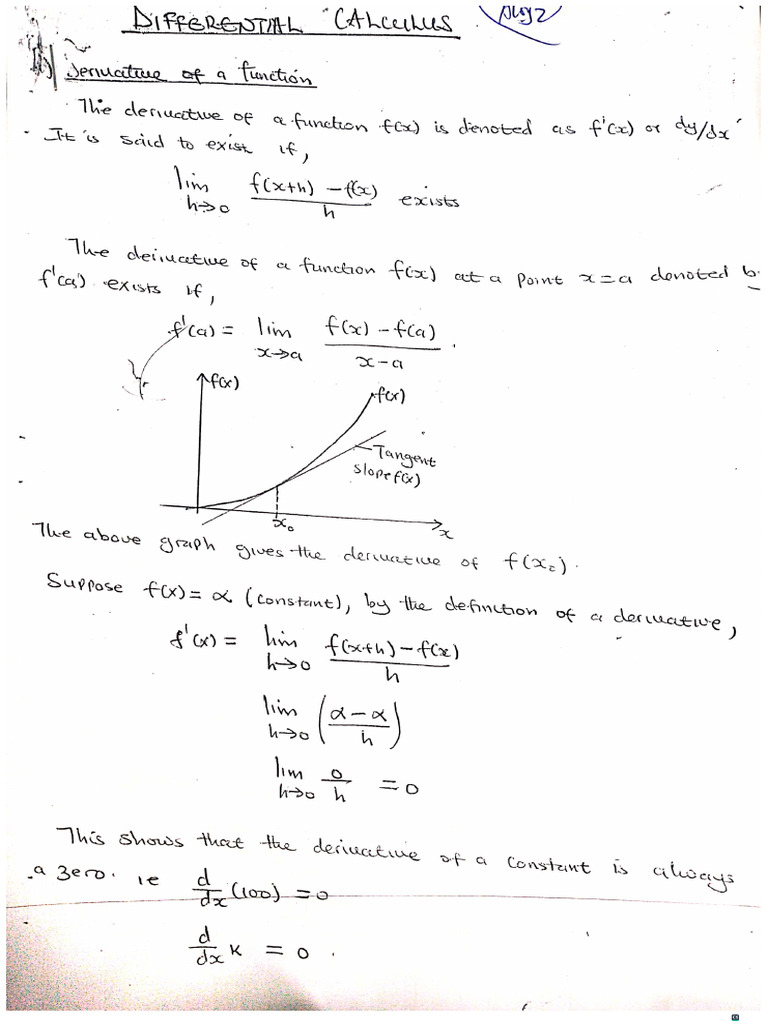 DIFFERENTIAL CALCULUS
Derivative of a function
The derivative of a function f(x) is denoted as f'(x) or dy/dx
It is said to exist if,
lim h→0 f(x+h) - f(x) / h exists
The derivative of a function f(x) at a point x=a denoted b
f'(a) exists if,
f'(a) = lim x→a f(x) - f(a) / x-a .
f(x)
f(x)
Tangent
slope f(x)
x₀
x
The above graph gives the derivative of f(x₀).
Suppose f(x) = α (constant), by the definition of a derivative,
f'(x) = lim h→0 f(x+h) - f(x) / h
lim h→0 (α-α / h)
lim h→0 0/h = 0
This shows that the derivative of a constant is always
a zero. ie d/dx (100) = 0
d/dx K = 0 .